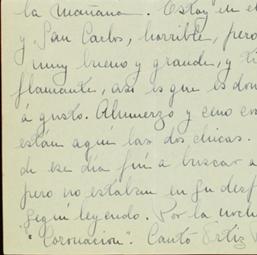 la mañana. Estoy en el
y San Carlos, horrible, pero
muy bueno y grande, y ti
flamante, así es que es don
á gusto. Almuerzo y ceno co
están aquí las dos chicas.
de ese día fuí a buscar a
pero no estaban en su
Seguí leyendo. Por la noche
"Coronación". Cantó Ortiz